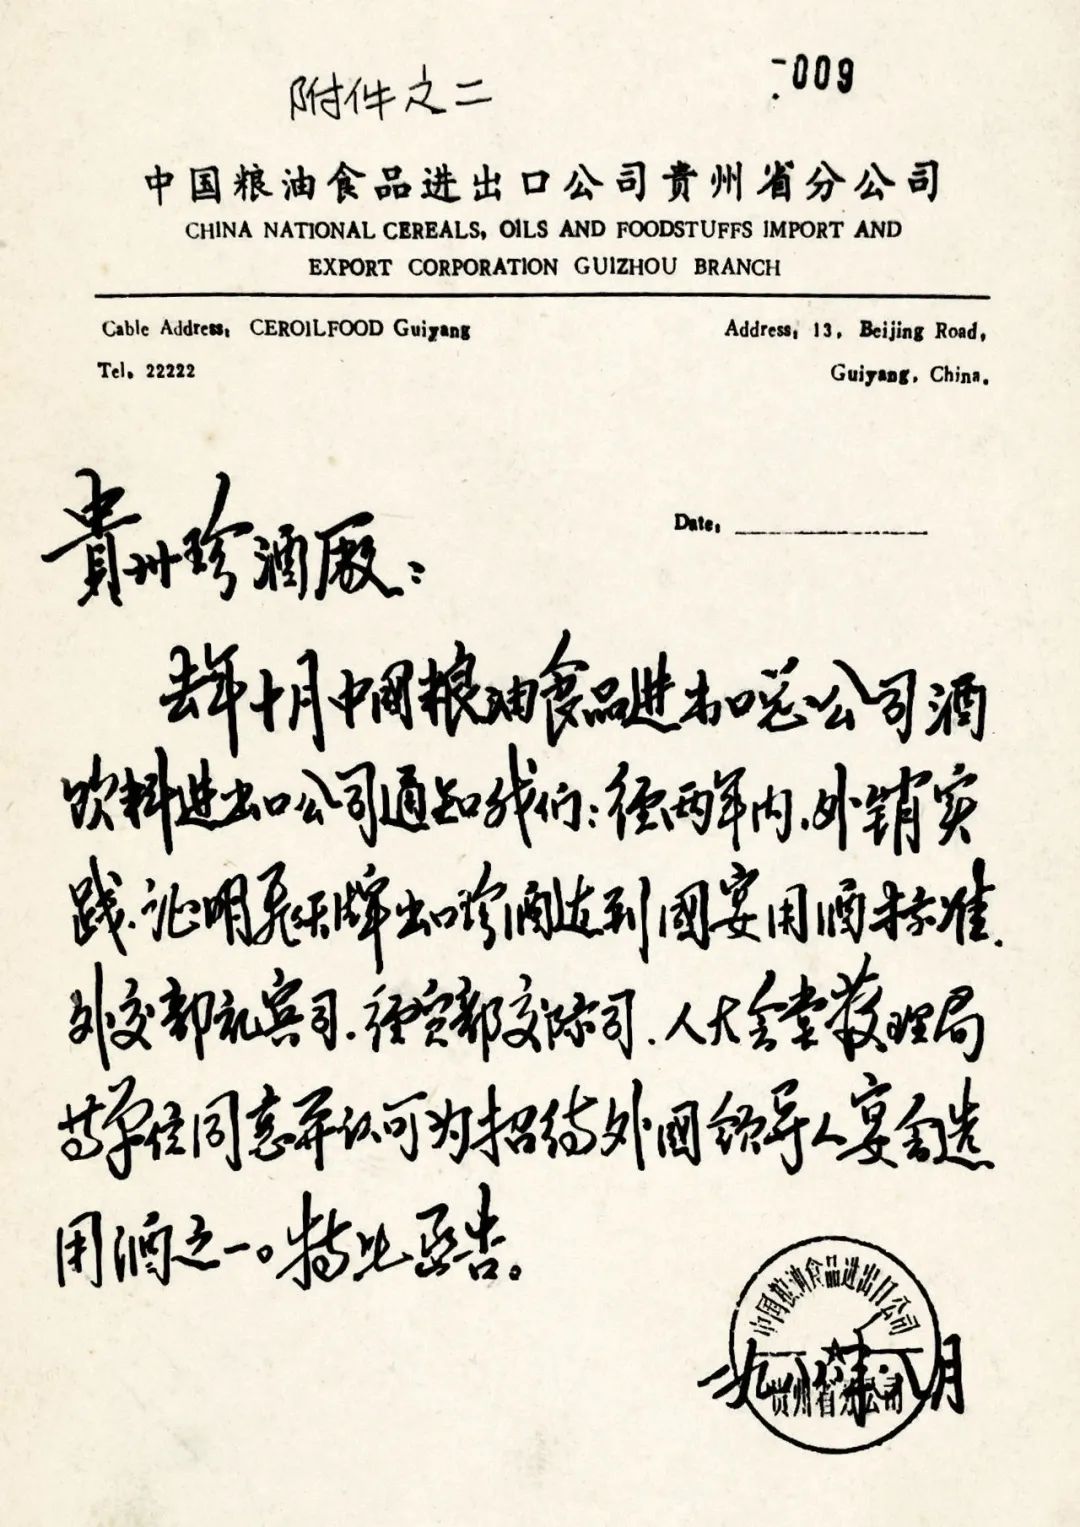 附件之二
009
中国粮油食品进出口公司贵州省分公司
CHINA NATIONAL CEREALS, OILS AND FOODSTUFFS IMPORT AND
EXPORT CORPORATION GUIZHOU BRANCH
Cable Address: CEROILFOOD Guiyang
Address: 13, Beijing Road,
Tel. 22222
Guiyang, China.
Date:
貴州珍酒厰：
去年十月中國粮油食品进出口总公司酒
饮料进出口公司通知我们：经两年内、外销实
践、证明飞天牌出口珍酒达到國宴用酒标准.
外交部礼宾司、经贸部交际司、人大会堂管理局
等单位同意并认可为招待外國领导人宴会选
用酒之一。特此函告。
中国粮油食品进出口公司
贵州省分公司
一九八八年八月